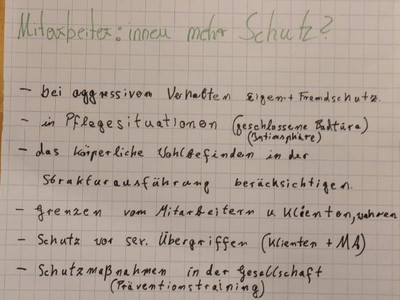 Mitarbeiter:innen mehr Schutz?
- bei aggressivem Verhalten Eigen + Fremdschutz.
- in Pflegesituationen (geschlossene Badtüre)
(Intimsphäre)
- das körperliche Wohlbefinden in der
Strukturausführung berücksichtigen.
- Grenzen vom Mitarbeitern u Klienten, wahren
- Schutz vor sex. Übergriffen (Klienten + MA)
- Schutzmaßnahmen in der Gesellschaft
(Präventionstraining)